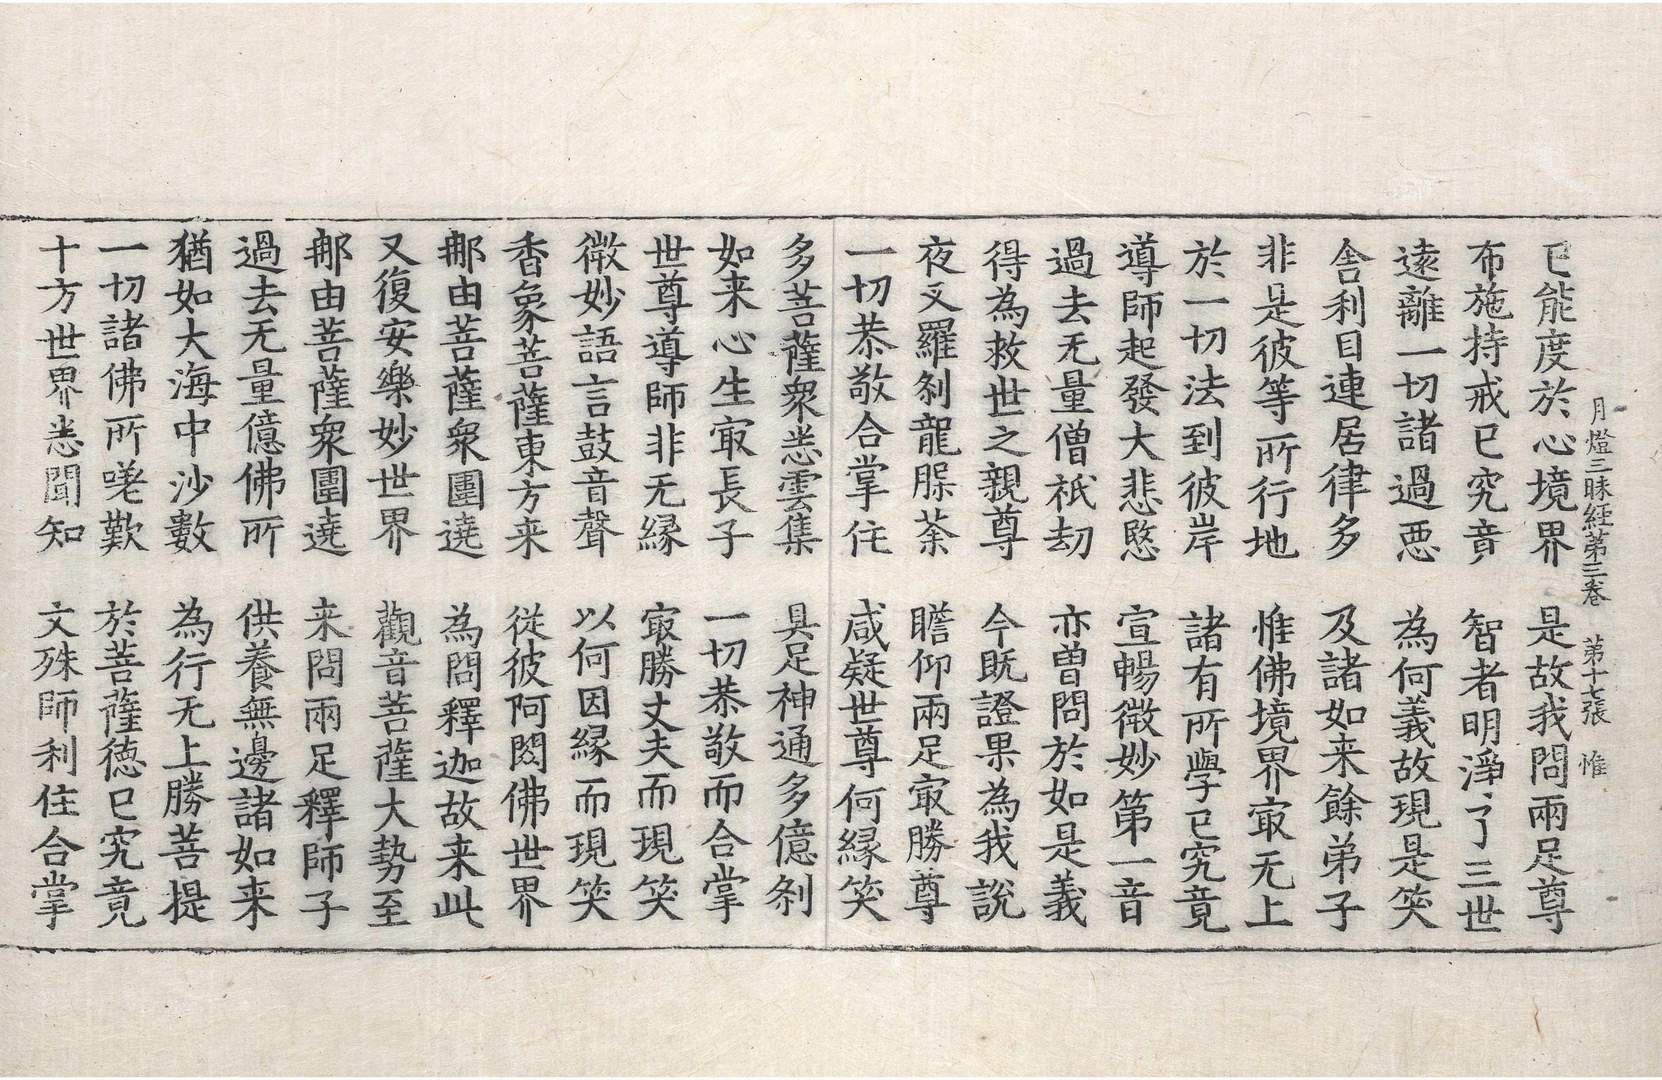 月燈三昧經第三卷　第十七張　惟
已能度於心境界　是故我問兩足尊
布施持戒已究竟　智者明淨了三世
遠離一切諸過恶　為何義故現是笑
舎利目連居律多　及諸如来餘弟子
非是彼等所行地　惟佛境界㝡无上
於一切法到彼岸　諸有所學已究竟
導師起發大悲愍　宣暢微妙第一音
過去无量僧祇劫　亦曽問於如是義
得為救世之親尊　今既證果為我說
夜叉羅刹龍脲荼　瞻仰兩足㝡勝尊
一切恭敬合掌住　咸疑世尊何縁笑
多菩薩衆悉雲集　具足神通多億刹
如来心生㝡長子　一切恭敬而合掌
世尊導師非无縁　㝡勝丈夫而現笑
微妙語言鼓音聲　以何因縁而現笑
香象菩薩東方来　從彼阿閦佛世界
那由菩薩衆圍遶　為問釋迦故来此
又復安樂妙世界　觀音菩薩大勢至
那由菩薩衆圍遶　来問兩足釋師子
過去无量億佛所　供養無邊諸如来
猶如大海中沙數　為行无上勝菩提
一切諸佛所嘆歎　於菩薩徳已究竟
十方世界悉聞知　文殊師利住合掌